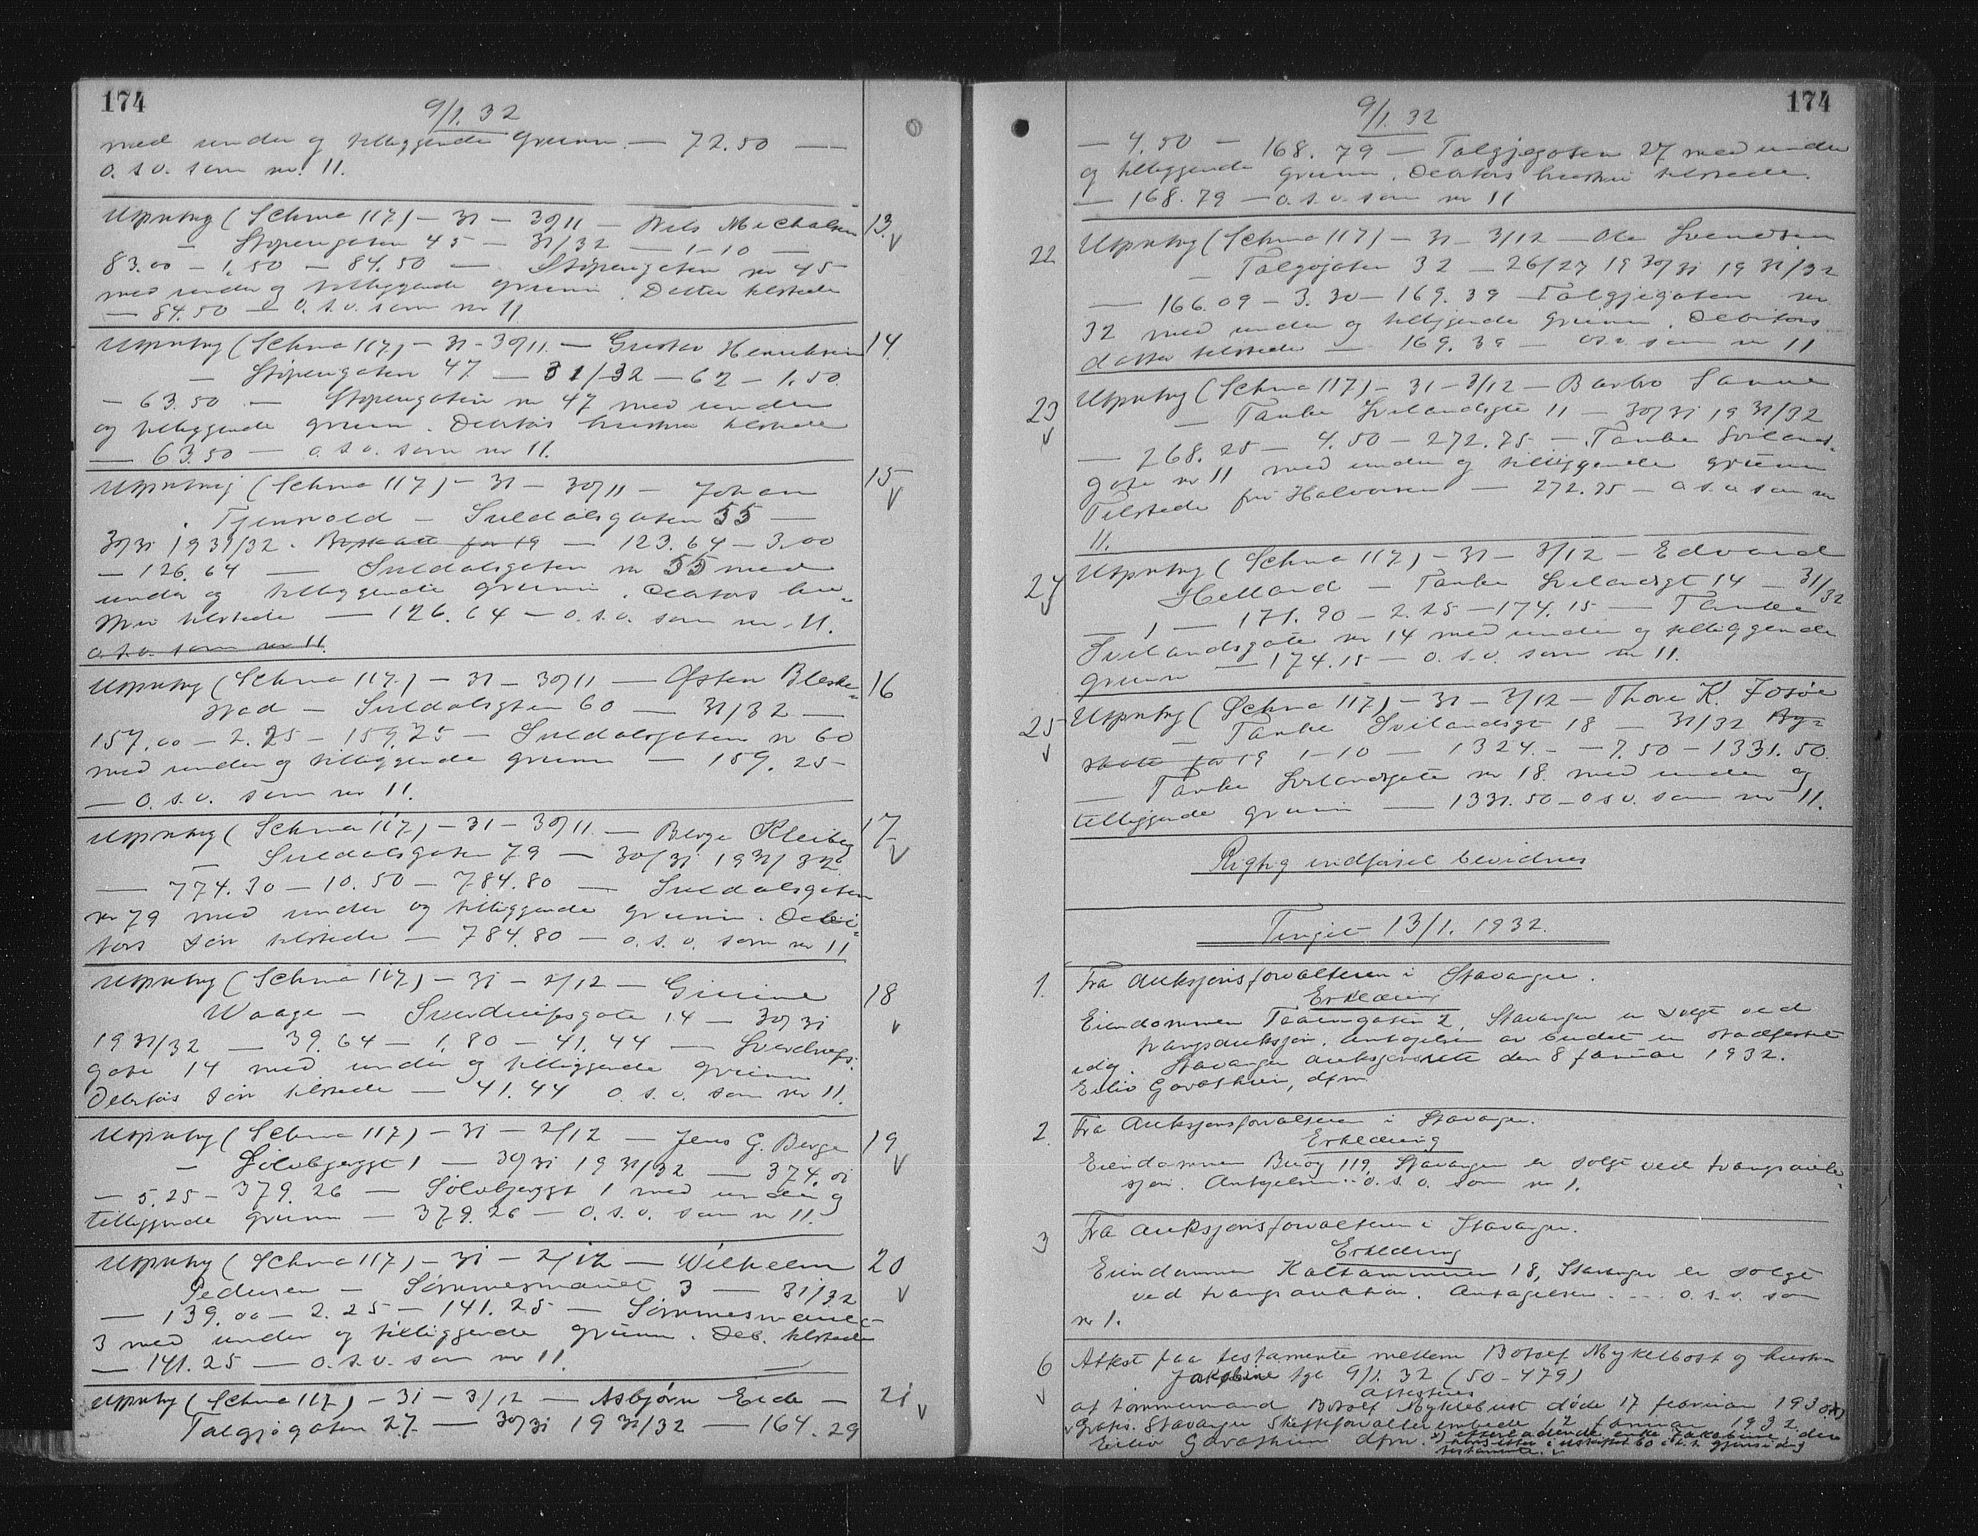 174
9/1. 32
med under og tilliggende grunn. — 72.50 —
o.s.v. som nr. 11.
Utpntrg (Schma 117) — 31 — 30/11 — Nils Michalsen 13.
— Støpergaten 45 — 31/32 — 1-10 —
83.00 — 1.50 — 84.50 — Støpergaten nr 45
med under og tilliggende grunn. Datter tilstede
— 84.50 — o.s.v. som nr 11
Utpntrg (Schma 117) — 31 — 30/11 — Gustav Henriksen 14.
— Støpergaten 47 — 31/32 — 62 — 1.50
— 63.50 — Støpergaten nr 47 med under
og tilliggende grunn. Debitors hustru tilstede
— 63.50 — o.s.v. som nr 11.
Utpntrg (Schma 117) — 31 — 30/11 — Johan 15
Tjensvold — Suldalsgaten 55 —
30/31 1931/32. Byskatt for 19 — 123.64 — 3.00
— 126.64 — Suldalsgaten nr 55 med
under og tilliggende grunn. Debitors hu-
stru tilstede — 126.64 — o.s.v. som nr. 11.
o.s.v. som nr 11.
Utpntrg (Schma 117.) — 31 — 30/11 — Østen Bleske- 16
stad — Suldalsgten 60 — 31/32 —
157.00 — 2.25 — 159.25 — Suldalsgaten nr 60
med under og tilliggende grunn — 159.25 —
— o.s.v. som nr 11.
Utpntrg (Schma 117) — 31 — 30/11. — Berge Kleiberg 17
— Suldalsgaten 79 — 30/31 1931/32.
— 774.30 — 10.50 — 784.80 — Suldalsgaten
nr 79 med under og tilliggende grunn. Debi-
tors søn tilstede — 784.80 — o.s.v. som nr 11
Utpntrg (Schma 117) — 31 — 2/12 — Gurine 18
Waage — Sverdrupsgate 14 — 30/31
1931/32 — 39.64 — 1.80 — 41.44 — Sverdrups-
gate 14 med under og tilliggende grunn
Debitors søn tilstede — 41.44 o.s.v. som nr 11.
Utpntrg (Schma 117) — 31 — 2/12 — Jens G. Berge 19
— Sølvbjerggt 1 — 30/31 1931/32 — 374.01
— 5.25 — 379.26 — Sølvbjerggt 1 med under og
tilliggende grunn — 379.26 — o.s.v. som nr 11.
Utpntrg (Schma 117) — 31 — 2/12 — Wilhelm 20
Pedersen — Sømmesmauet 3 — 31/32
— 139.00 — 2.25 — 141.25 — Sømmesmauet
3 med under og tilliggende grunn. Deb. tilstede
— 141.25 — o.s.v. som nr 11.
Utpntrg (Schma 117) — 31 — 3/12 — Asbjørn Eide — 21
Talgjegaten 27 — 30/31 1931/32 — 164.29
174
9/1. 32
— 4.50 — 168.79 — Talgjegaten 27 med under
og tilliggende grunn. Debitors hustru tilstede.
— 168.79 — o.s.v. som nr 11
22 Utpntrg (Schma 117) — 31 — 3/12 — Ole Svendsen
— Talgjegaten 32 — 26/27 1930/31 1931/32
— 166.09 — 3.30 — 169.39 — Talgjegaten nr.
32 med under og tilliggende grunn. Debitors
datter tilstede — 169.39 — o.s.v. som nr 11
23 Utpntrg (Schma 117) — 31 — 3/12 — Barbro Sanne
— Tanke Svilandsgte 11 — 30/31 1931/32
— 268.25 — 4.50 — 272.75 — Tanke Svilands-
gate nr 11 med under og tilliggende grunn
Tilstede fru Halvorsen — 272.75 — o.s.v. som nr
11.
24 Utpntrg (Schma 117) — 31 — 3/12 — Edvard
Helland — Tanke Svilandsgt 14 — 31/32
— 1 — 171.90 — 2.25 — 174.15 — Tanke
Svilandsgate nr 14 med under og tilliggende
grunn — 174.15 — o.s.v. som nr 11.
25 Utpntrg (Schma 117) — 31 — 3/12 — Thore K. Fosse
— Tanke Svilandsgt 18 — 31/32 By-
skatt for 19 1-10 — 1324.- — 7.50 — 1331.50.
— Tanke Svilandsgate nr 18. med under og
tilliggende grunn — 1331.50 — o.s.v. som nr 11.
Rigtig indførsel bevidnes
Tinget 13/1. 1932.
1. Fra Auksjonsforvalteren i Stavanger.
Erklæring
Eiendommen Taarngaten 2, Stavanger er solgt ved
tvangsauksjon. Antagelsen av budet er stadfestet
idag. Stavanger auksjonsrett den 8 januar 1932.
Eiliv Gavathien, dfm.
2. Fra Auksjonsforvalteren i Stavanger.
Erklæring
Eiendommen Buøy 119, Stavanger er solgt ved tvangsauk-
sjon. Antagelsen .. o.s.v. som nr 1.
3 Fra Auksjonsforvalteren i Stavanger.
Erklæring
Eiendommen Kaltammen 18, Stavanger er solgt
ved tvangsauktion. Antagelsen .... o.s.v. som
nr 1.
6 Atkst paa testamente mellem Botolf Myklebost og hustru
Jakobine tgl 9/1. 32 (50-479)
attesteres
at tømmermand Botolf Myklebust døde 17 februar 1930 x)
Gratis. Stavanger Skifteforvalterembede 12 januar 1932
Eiliv Gavathien dfm. x) efterladende enke Jakobine, ders
testamente